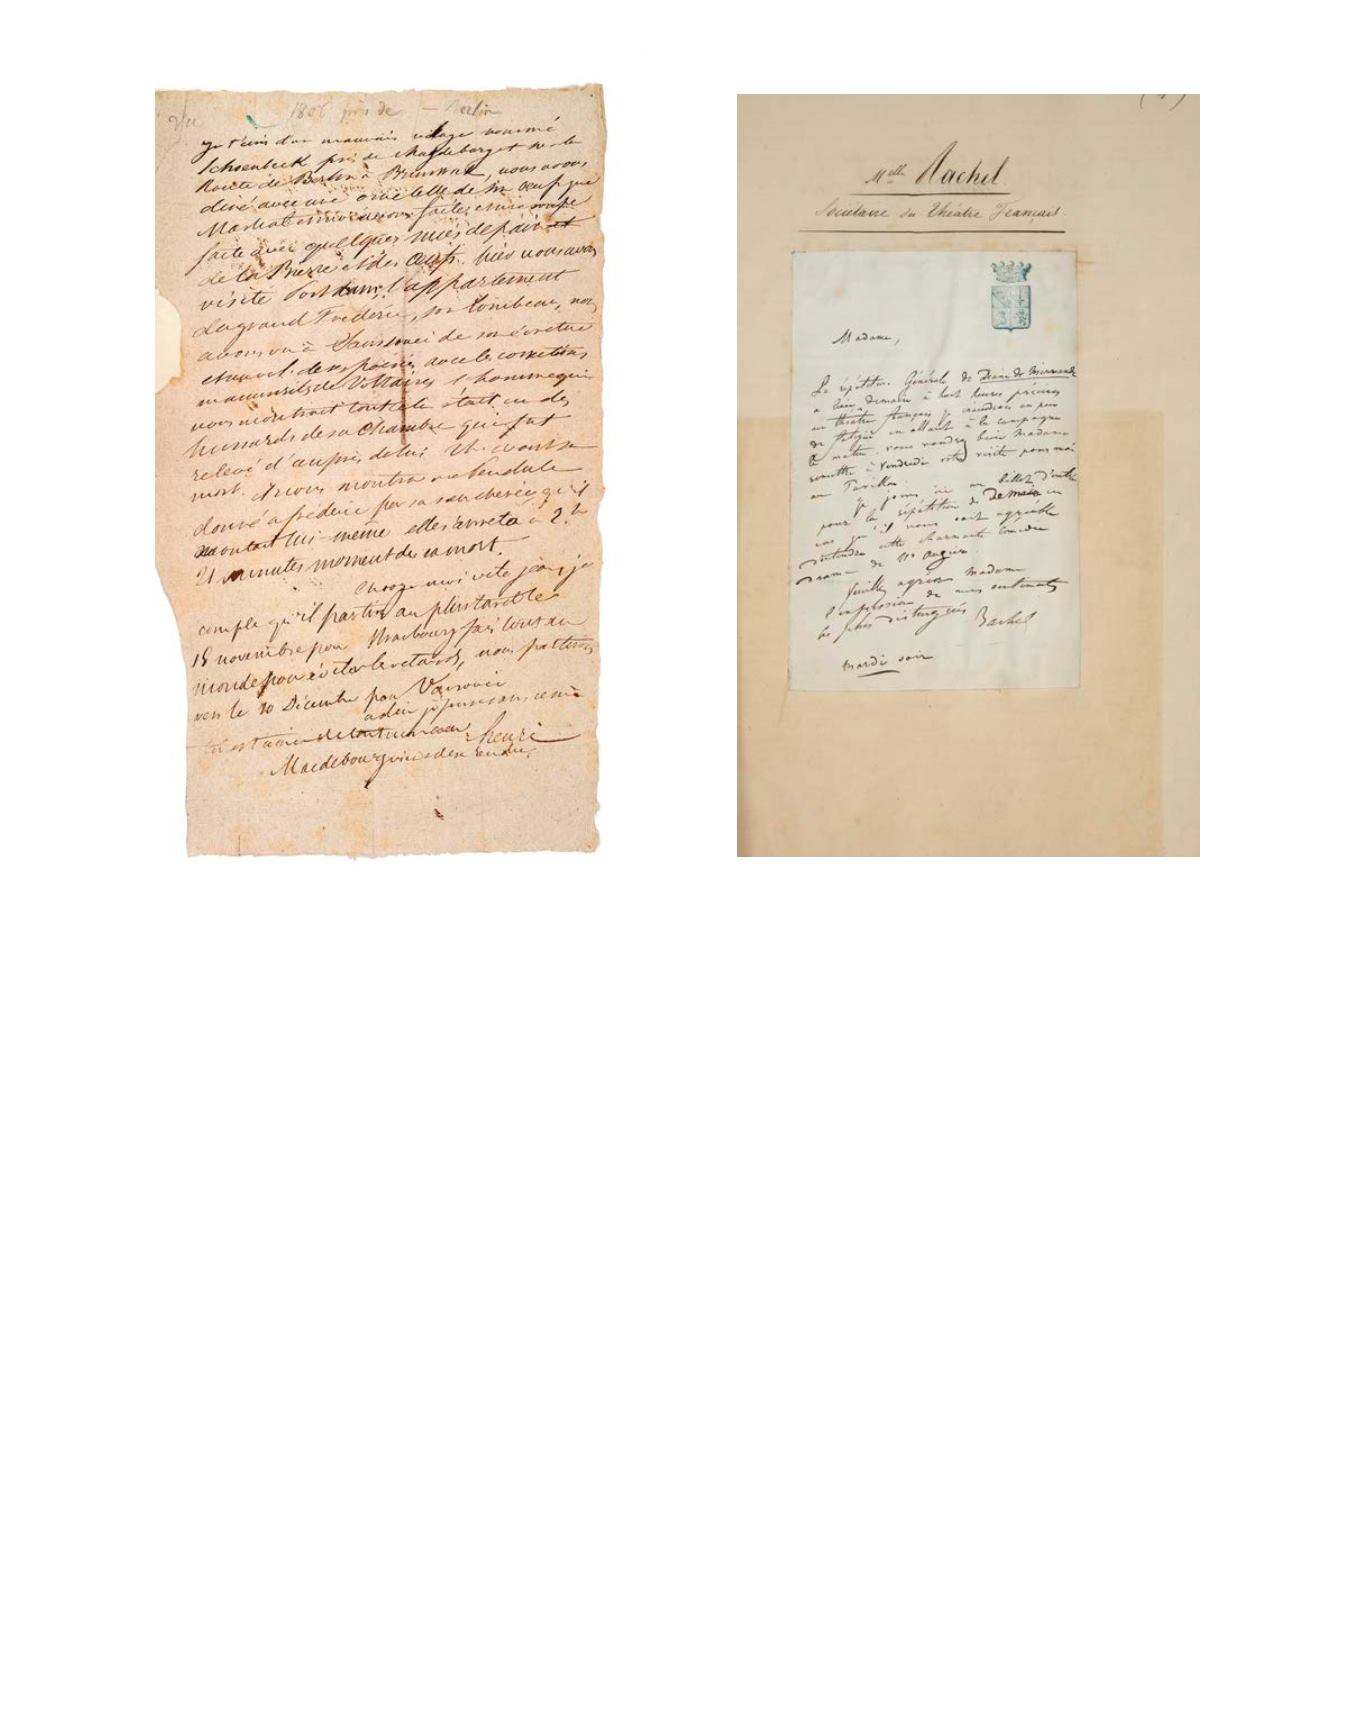 1806 près de — Berlin
je t'écris d'un mauvais village nommé
Schoenbeck près de Magdebourg et sur la
Route de Berlin à Brunswick, nous avons
diné avec une omelette de six oeufs que
Martial et moi avons faite, et une soupe
faite avec quelques mies de pain et
de la Bierre et des oeufs. hier nous avons
visité Postdam, l'appartement
du grand Frederic, son tombeau, nous
avons vu à Sanssouci de son écriture
de ses poésies avec les corrections
manuscrites de Voltaire, l'homme qui
nous montrait tout cela était un des
hussards de sa Chambre qui fut
relevé d'auprès de lui avant sa
mort. Il nous montra une Pendule
donné a frédéric par sa soeur cherie qu'il
montait lui-même elle s'arreta à 2.h
21 minutes moment de sa mort.
envoye moi vite jean, je
compte qu'il partira au plus tard le
15 novembre pour Strasbourg fais tout au
monde pour éviter le retard, nous partirons
vers le 10 Décembre pour Varsovie
adieu
de tout mon coeur henri
Magdebourg
(4)
Melle Rachel
Sociétaire du Théâtre Français.
Madame,
La répétition Générale de Diane de Mirmande
a lieu demain à huit heures précises
au théâtre français je craindrais un peu
de fatigue en allant à la campagne
le matin. vous voudrez bien Madame
remettre à Vendredi votre visite pour moi
au Pavillon.
Je joins ici un billet d'entrée
pour la répétition de Demain en
cas qu'il vous soit agréable
d'entendre cette charmante comédie
drame de Mr Augier.
Veuillez agréer Madame
l'expression de mes sentiments
les plus distingués Rachel
Mardi soir